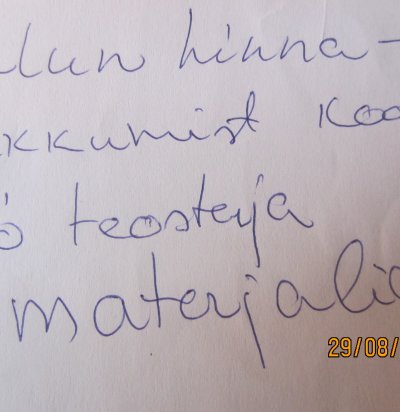 lun hinna-
kkumist koo
ö teosterja
materjali
29/08/